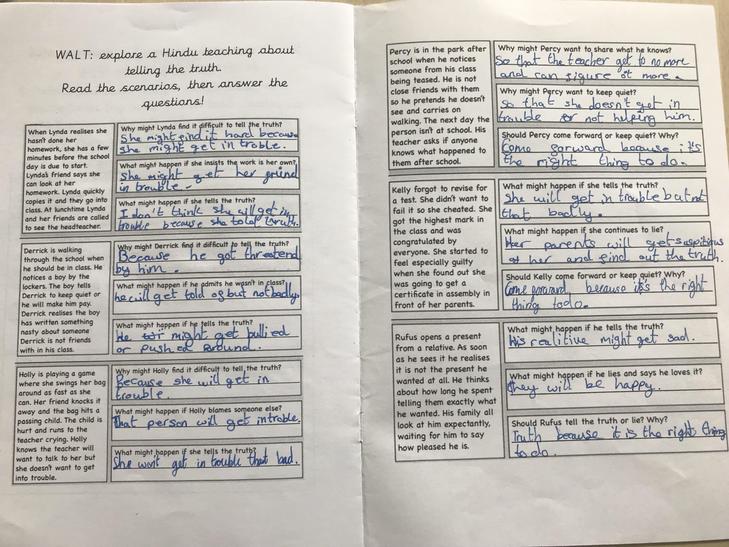 WALT: explore a Hindu teaching about
telling the truth.
Read the scenarios, then answer the
questions!
When Lynda realises she
hasn't done her
homework, she has a few
minutes before the school
day is due to start.
Lynda's friend says she
can look at her
homework. Lynda quickly
copies it and they go into
class. At lunchtime Lynda
and her friends are called
to see the headteacher.
Why might Lynda find it difficult to tell the truth?
She might find it hard because
she might get in troble.
What might happen if she insists the work is her own?
She might get her friend
in trouble.
What might happen if she tells the truth?
I don't think she will get in
trouble because she told truth.
Derrick is walking
through the school when
he should be in class. He
notices a boy by the
lockers. The boy tells
Derrick to keep quiet or
he will make him pay.
Derrick realises the boy
has written something
nasty about someone
Derrick is not friends
with in his class.
Why might Derrick find it difficult to tell the truth?
Because he got threatend
by him.
What might happen if he admits he wasn't in class?
he will get told of but not badly.
What might happen if he tells the truth?
He might get bullied
or pushed around.
Holly is playing a game
where she swings her bag
around as fast as she
can. Her friend knocks it
away and the bag hits a
passing child. The child is
hurt and runs to the
teacher crying. Holly
knows the teacher will
want to talk to her but
she doesn't want to get
into trouble.
Why might Holly find it difficult to tell the truth?
Because she will get in
trouble.
What might happen if Holly blames someone else?
that person will get in troble.
What might happen if she tells the truth?
She won't get in trouble that bad.
Percy is in the park after
school when he notices
someone from his class
being teased. He is not
close friends with them
so he pretends he doesn't
see and carries on
walking. The next day the
person isn't at school. His
teacher asks if anyone
knows what happened to
them after school.
Why might Percy want to share what he knows?
So that the teacher get to no more
and can figure ot more.
Why might Percy want to keep quiet?
so that she doesn't get in
trouble for not helping him.
Should Percy come forward or keep quiet? Why?
Come forward because it's
the right thing to do.
Kelly forgot to revise for
a test. She didn't want to
fail it so she cheated. She
got the highest mark in
the class and was
congratulated by
everyone. She started to
feel especially guilty
when she found out she
was going to get a
certificate in assembly in
front of her parents.
What might happen if she tells the truth?
She will get in trouble but not
that badly.
What might happen if she continues to lie?
Her parents will get suspitious
of her and find out the truth.
Should Kelly come forward or keep quiet? Why?
Come forward, because it's the right
thing to do.
Rufus opens a present
from a relative. As soon
as he sees it he realises
it is not the present he
wanted at all. He thinks
about how long he spent
telling them exactly what
he wanted. His family all
look at him expectantly,
waiting for him to say
how pleased he is.
What might happen if he tells the truth?
His realitive might get sad.
What might happen if he lies and says he loves it?
they will be happy.
Should Rufus tell the truth or lie? Why?
Truth because it is the right thing
to do.